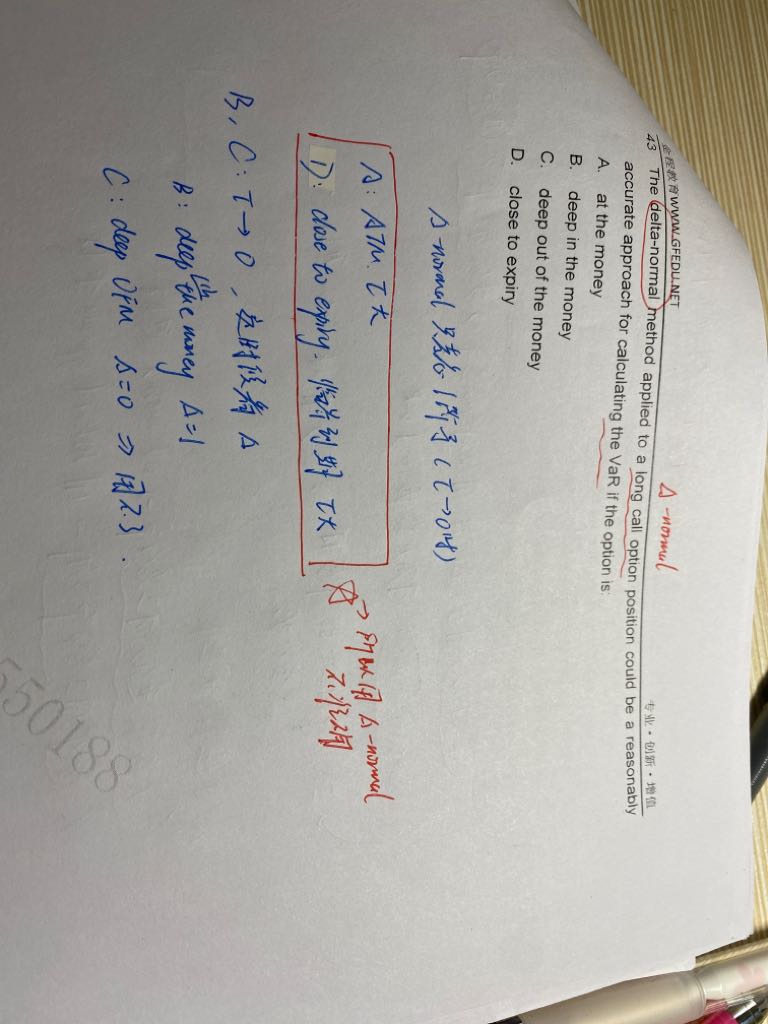 金程教育WWW.GFEDU.NET 专业·创新·增值
Δ-normal
43 The delta-normal method applied to a long call option position could be a reasonably
accurate approach for calculating the VaR if the option is:
A. at the money
B. deep in the money
C. deep out of the money
D. close to expiry
Δ-normal 只考虑1阶导(Γ→0时)
A: ATM. Γ大
D: close to expiry. 临近到期 Γ大
☆→所以用Δ-normal
不准确
B, C: Γ→0,
Δ
B: deep in the money Δ=1
C: deep OTM Δ=0 ⇒
550188